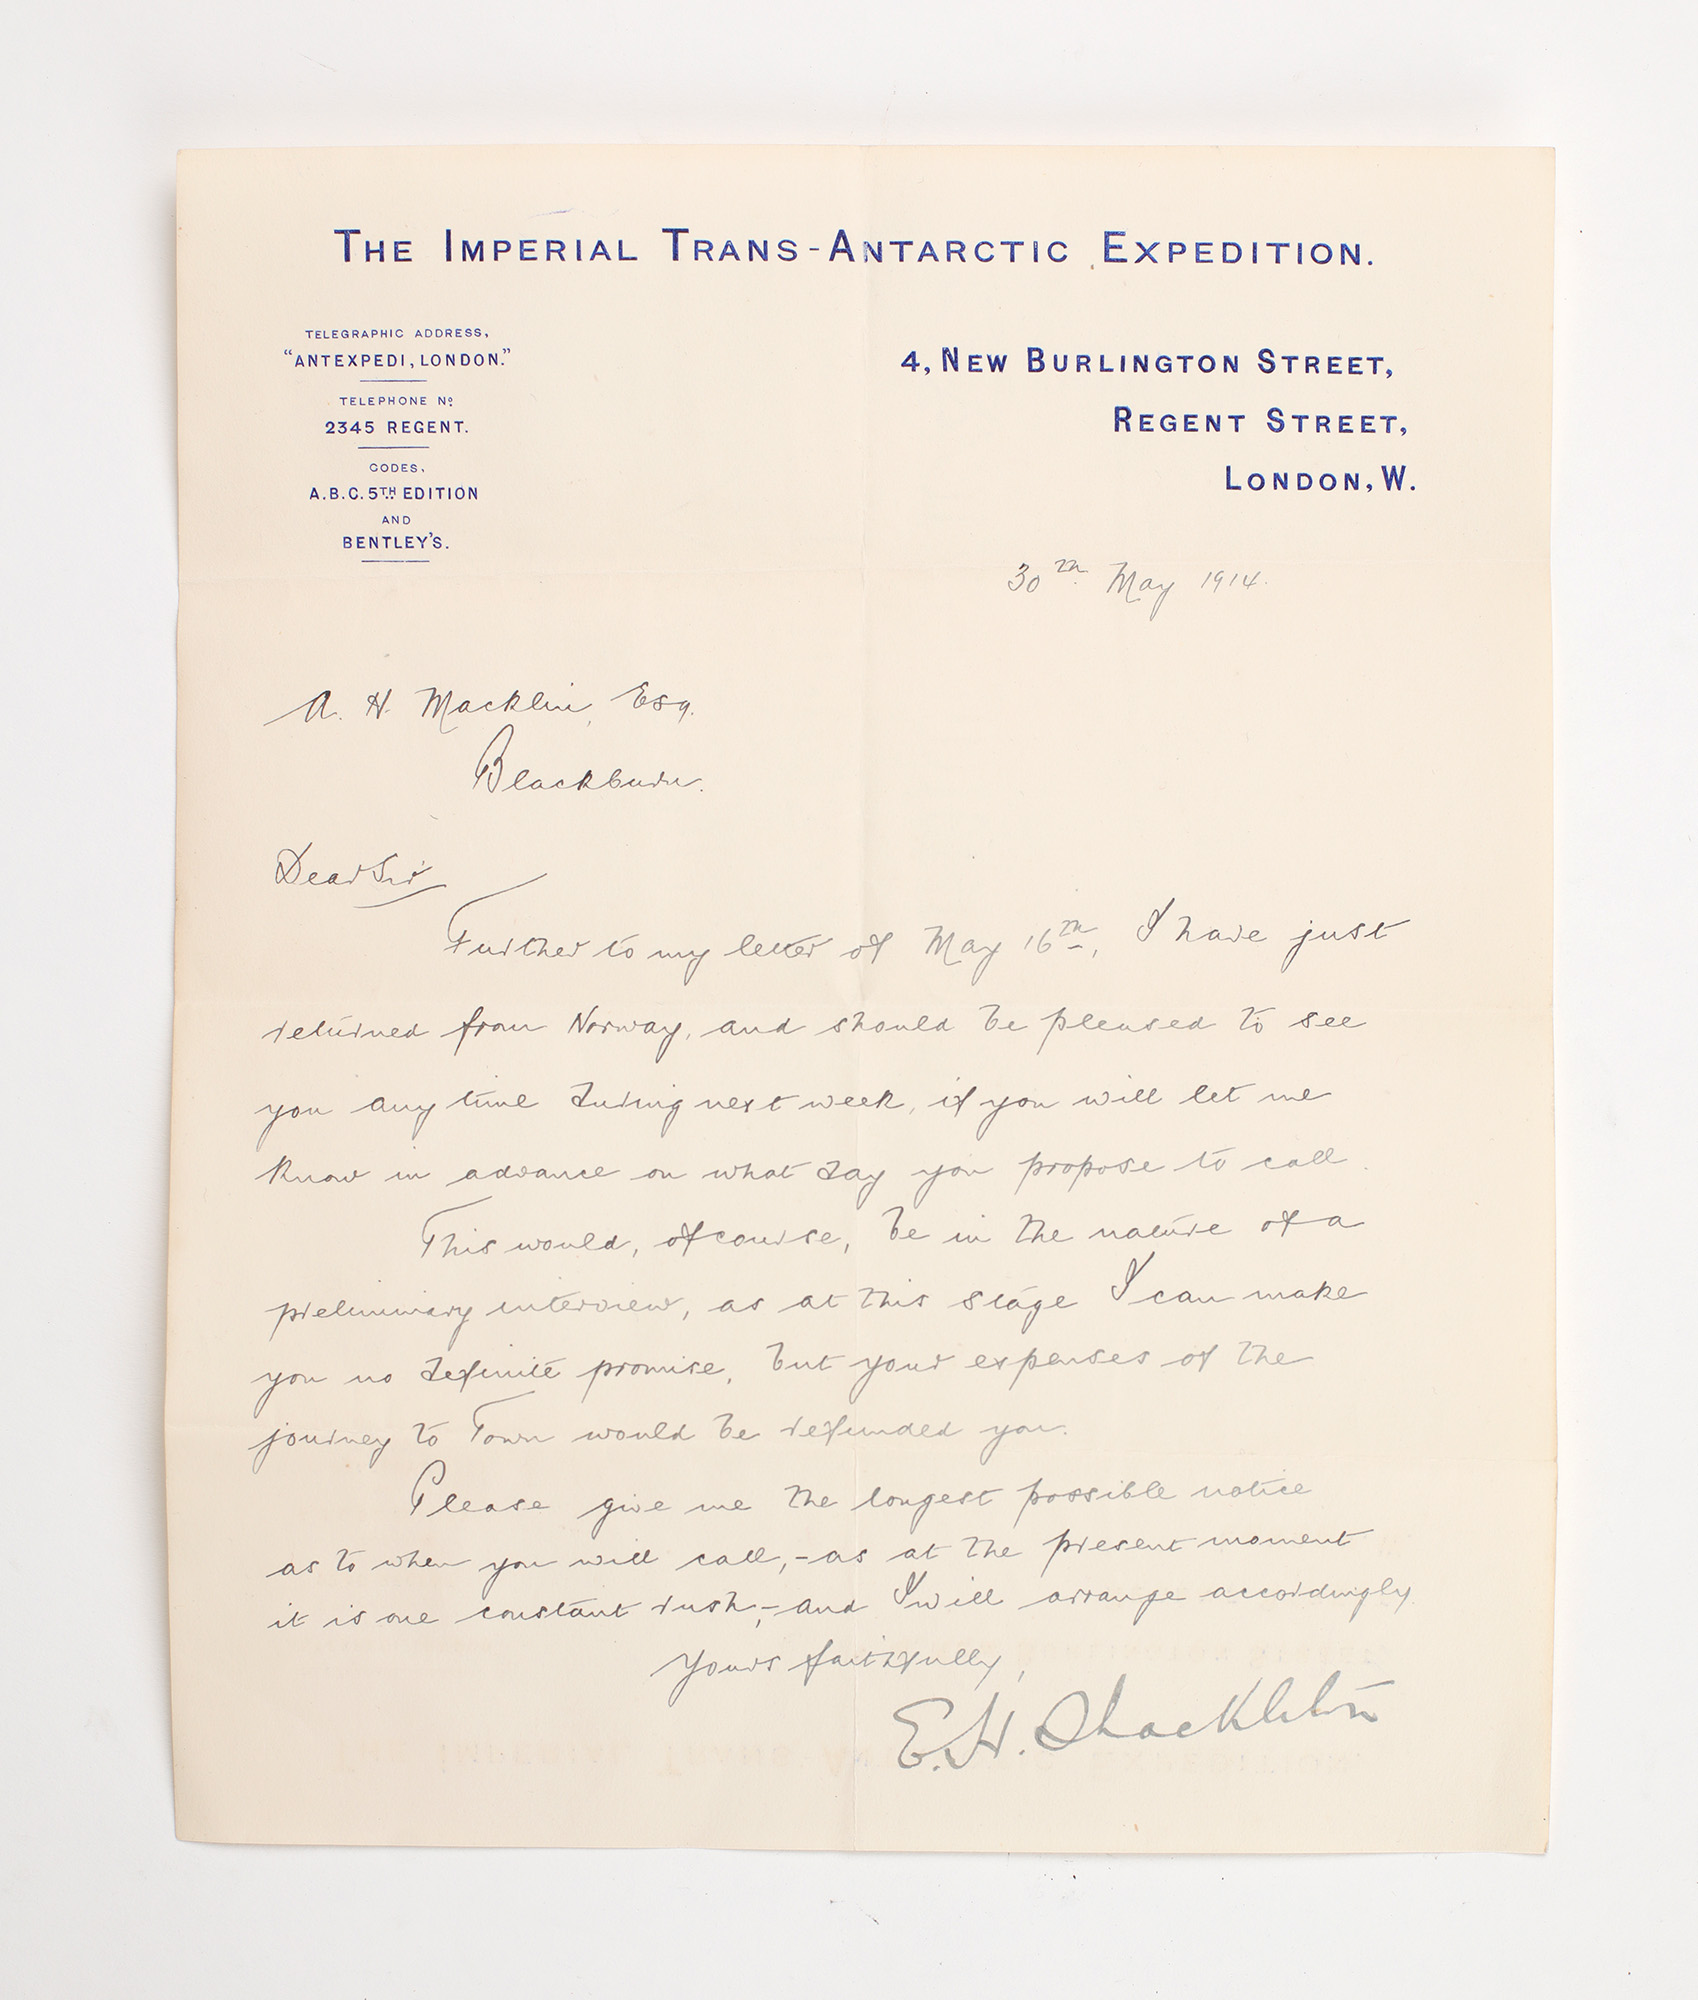 THE IMPERIAL TRANS-ANTARCTIC EXPEDITION.
TELEGRAPHIC ADDRESS,
"ANTEXPEDI, LONDON."
TELEPHONE No
2345 REGENT.
CODES,
A.B.C. 5TH EDITION
AND
BENTLEY'S.
4, NEW BURLINGTON STREET,
REGENT STREET,
LONDON, W.
30th May 1914.
A. H. Macklin, Esq.
Blackburn.
Dear Sir
Further to my letter of May 16th, I have just
returned from Norway, and should be pleased to see
you any time during next week, if you will let me
know in advance on what day you propose to call.
This would, of course, be in the nature of a
preliminary interview, as at this stage I can make
you no definite promise, but your expenses of the
journey to Town would be refunded you.
Please give me the longest possible notice
as to when you will call, - as at the present moment
it is one constant rush, - and I will arrange accordingly.
Yours faithfully,
E. H. Shackleton